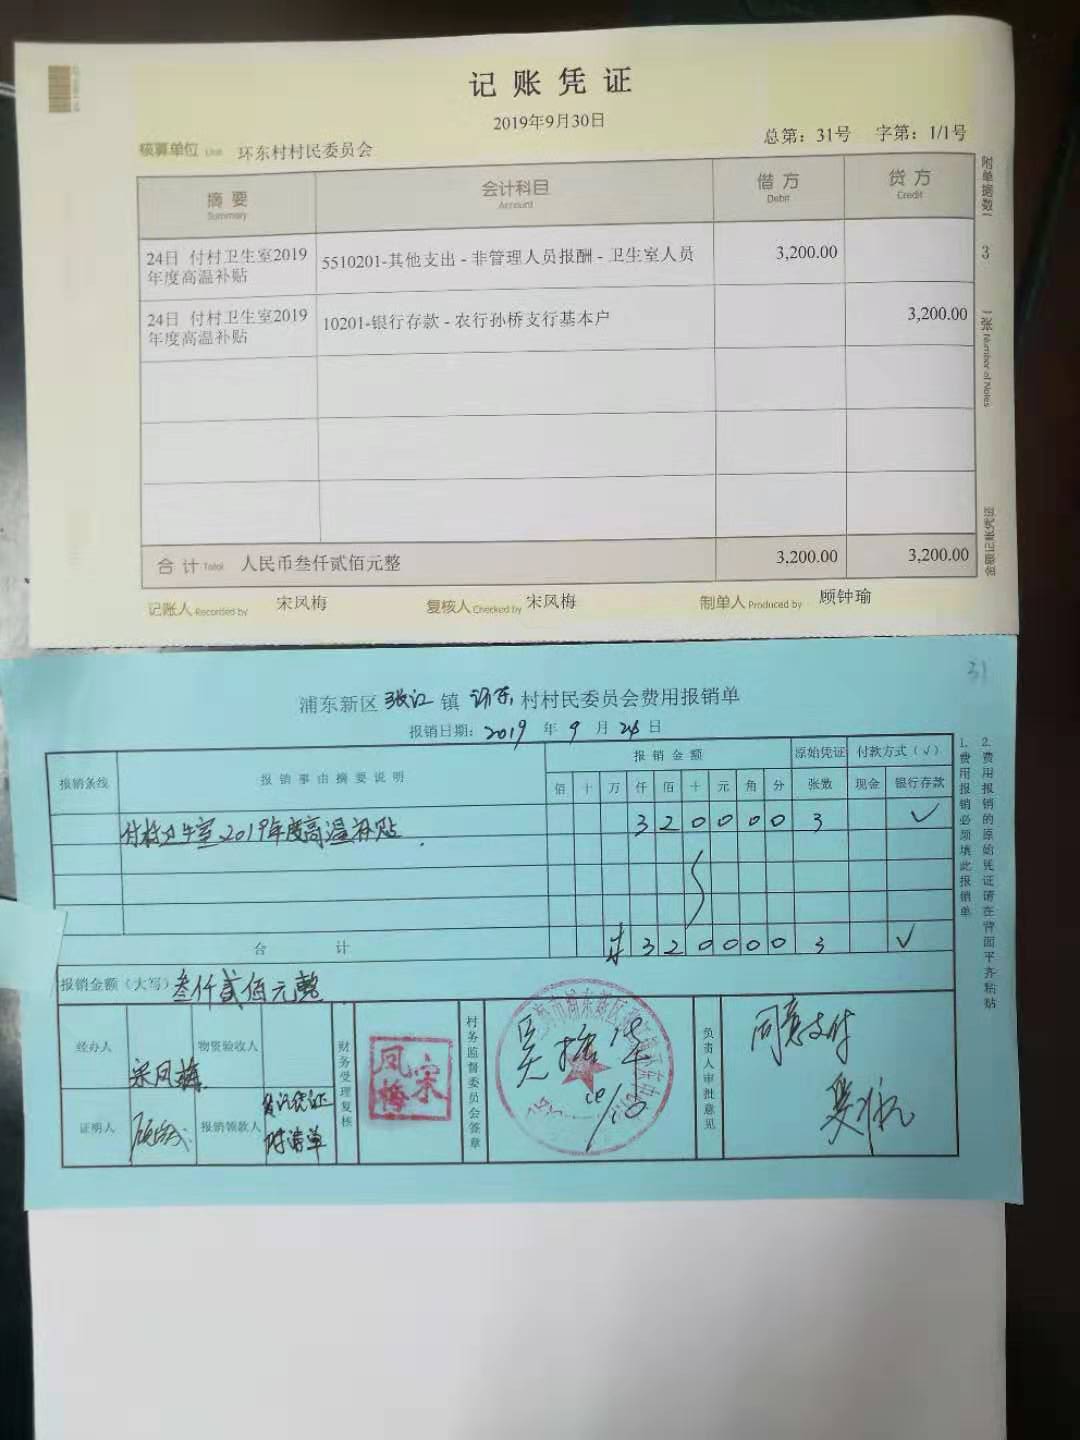 记账凭证
2019年9月30日
核算单位 Unit 环东村村民委员会
总第：31号 字第：1/1号
摘要 会计科目 借方 贷方
Summary Account Debit Credit
24日 付村卫生室2019年度高温补贴 5510201-其他支出 - 非管理人员报酬 - 卫生室人员 3,200.00
24日 付村卫生室2019年度高温补贴 10201-银行存款 - 农行孙桥支行基本户 3,200.00
合计 Total 人民币叁仟贰佰元整 3,200.00 3,200.00
记账人 Recorded by 宋凤梅 复核人 Checked by 宋凤梅 制单人 Produced by 顾钟瑜
附单据数 3 张 Number of Notes
金额记账凭证
31
浦东新区张江镇环东村村民委员会费用报销单
报销日期：2019年9月24日
报销条线 报销事由摘要说明 报销金额 原始凭证 付款方式（√）
佰 十 万 仟 佰 十 元 角 分 张数 现金 银行存款
付村卫生室2019年度高温补贴. 3 2 0 0 0 0 3 √
合计 3 2 0 0 0 0 3 √
报销金额（大写）叁仟贰佰元整
经办人 宋凤梅 物资验收人
证明人 报销领款人 附清单
财务受理复核
宋凤梅
村务监督委员会签章
10/10
负责人审批意见
同意支付
1.费用报销必须填此报销单
2.费用报销的原始凭证请在背面平齐粘贴